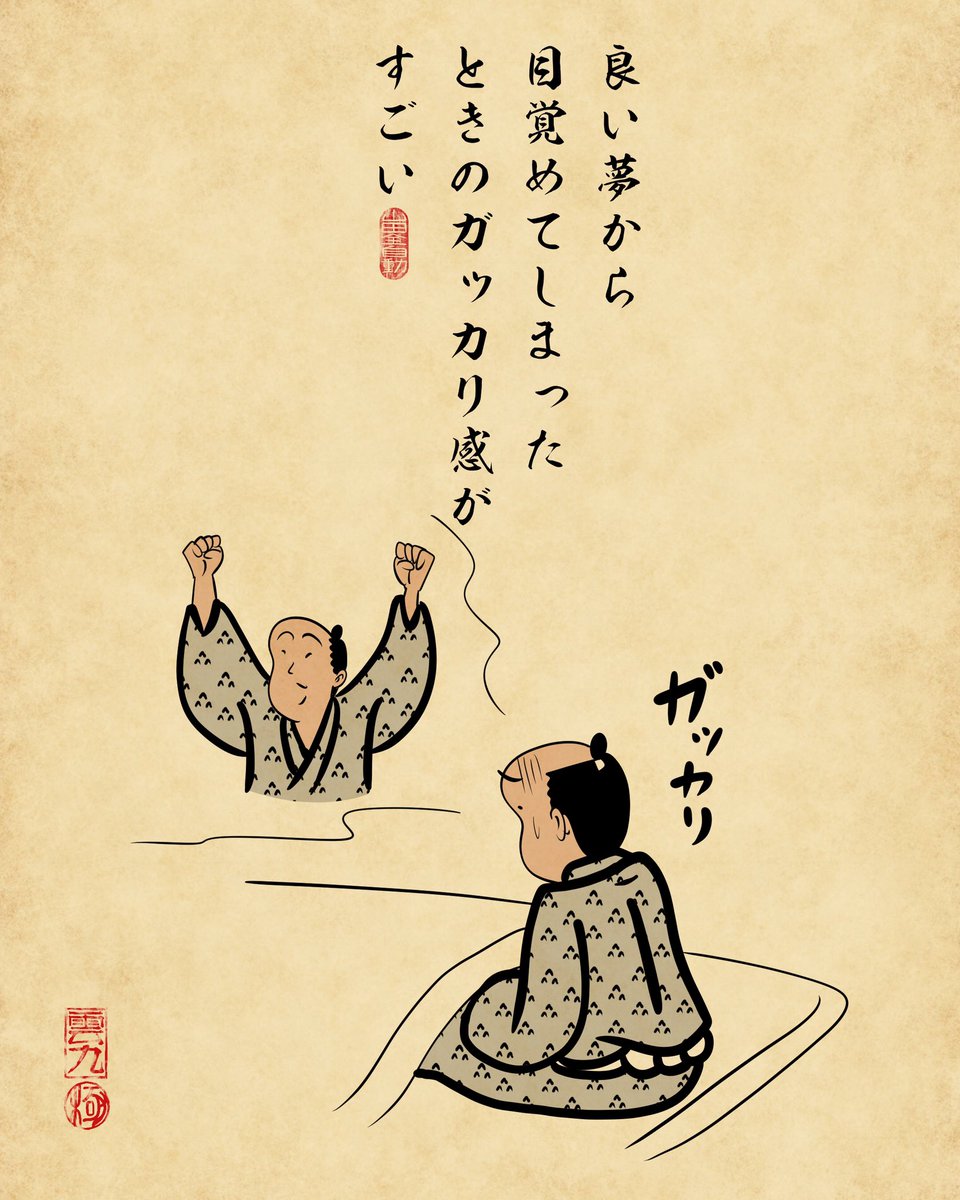 良い夢から
目覚めてしまった
ときのガッカリ感が
すごい
ガッカリ